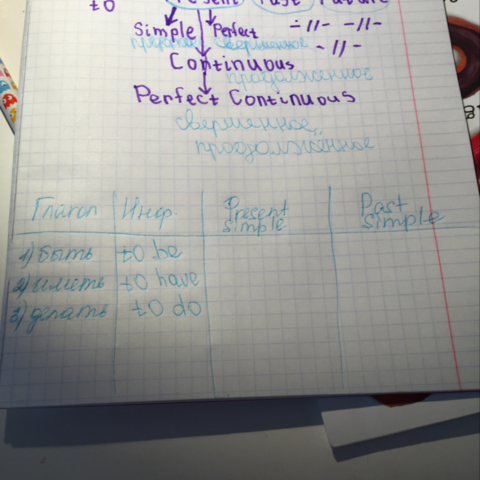 to Present Past Future
Simple Perfect -//- -//-
совершенное -//-
Continuous
продолженное
Perfect Continuous
совершенное,
продолжённое
Глагол Инф. Present simple Past simple
1) быть to be
2) иметь to have
3) делать to do